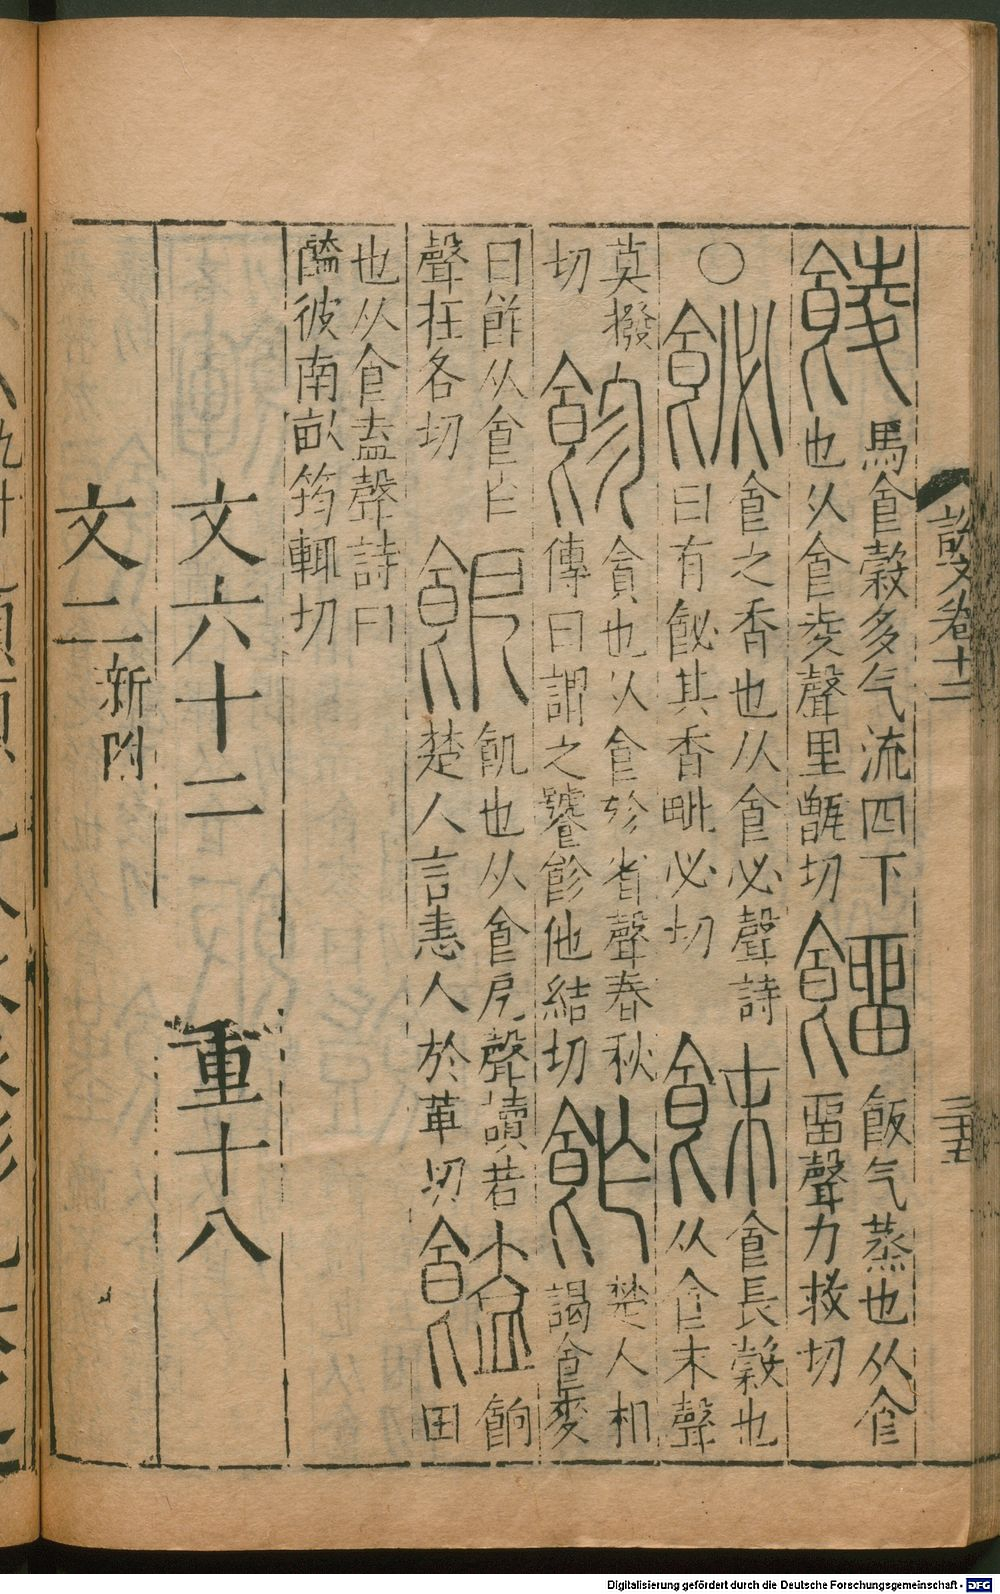 説文卷十二
三十五
䬋
馬食穀多气流四下
也从食夌聲里甑切
餾
飯气蒸也从食
畱聲力救切
○
飶
食之香也从食必聲詩
曰有飶其香毗必切
䬴
食長穀也
从食末聲
莫撥
切
飻
貪也从食殄省聲春秋
傳曰謂之饕飻他結切
飵
楚人相
謁食麥
曰飵从食乍
聲在各切
飢也从食戹聲讀若
楚人言恚人於革切
饁
餉
田
也从食盍聲詩曰
饁彼南畝筠輒切
文六十二 重十八
文二新附
Digitalisierung gefördert durch die Deutsche Forschungsgemeinschaft - DFG